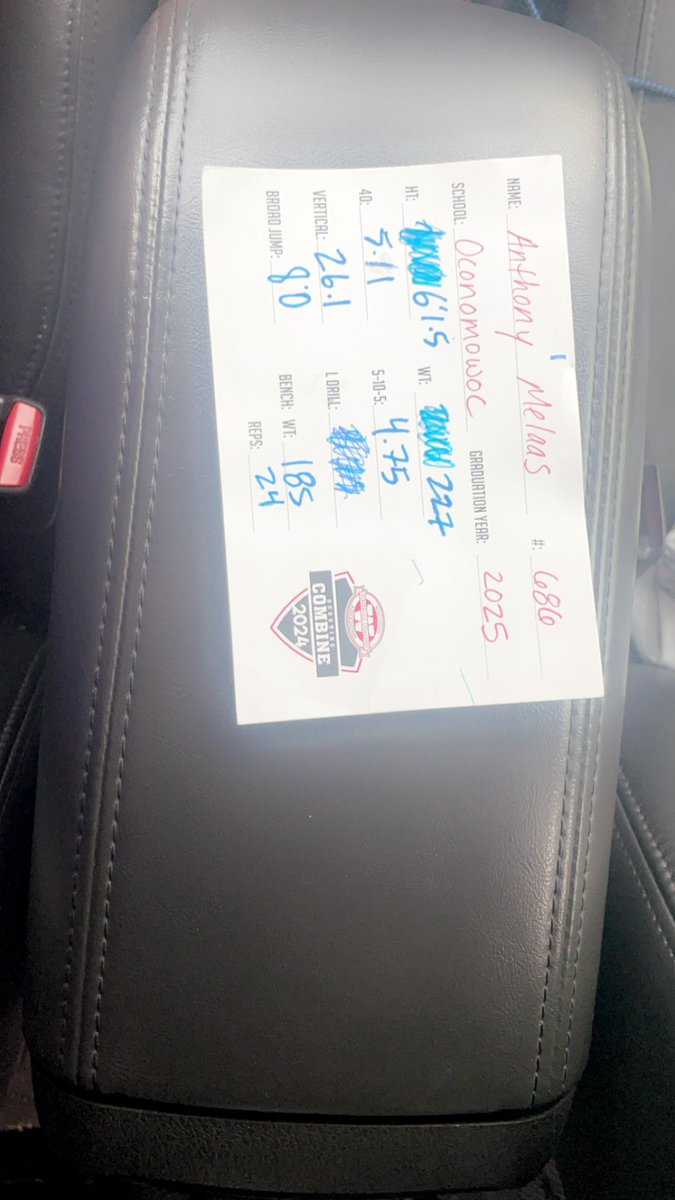 NAME: Anthony Melaas #: 686
SCHOOL: Oconomowoc GRADUATION YEAR: 2025
HT: 6'1.5 WT: 227
40: 5.11 5-10-5: 4.75
VERTICAL: 26.1 L DRILL:
BROAD JUMP: 8.0 BENCH: WT: 185
REPS: 24
W
SCOUTING
COMBINE
2024
PRESS